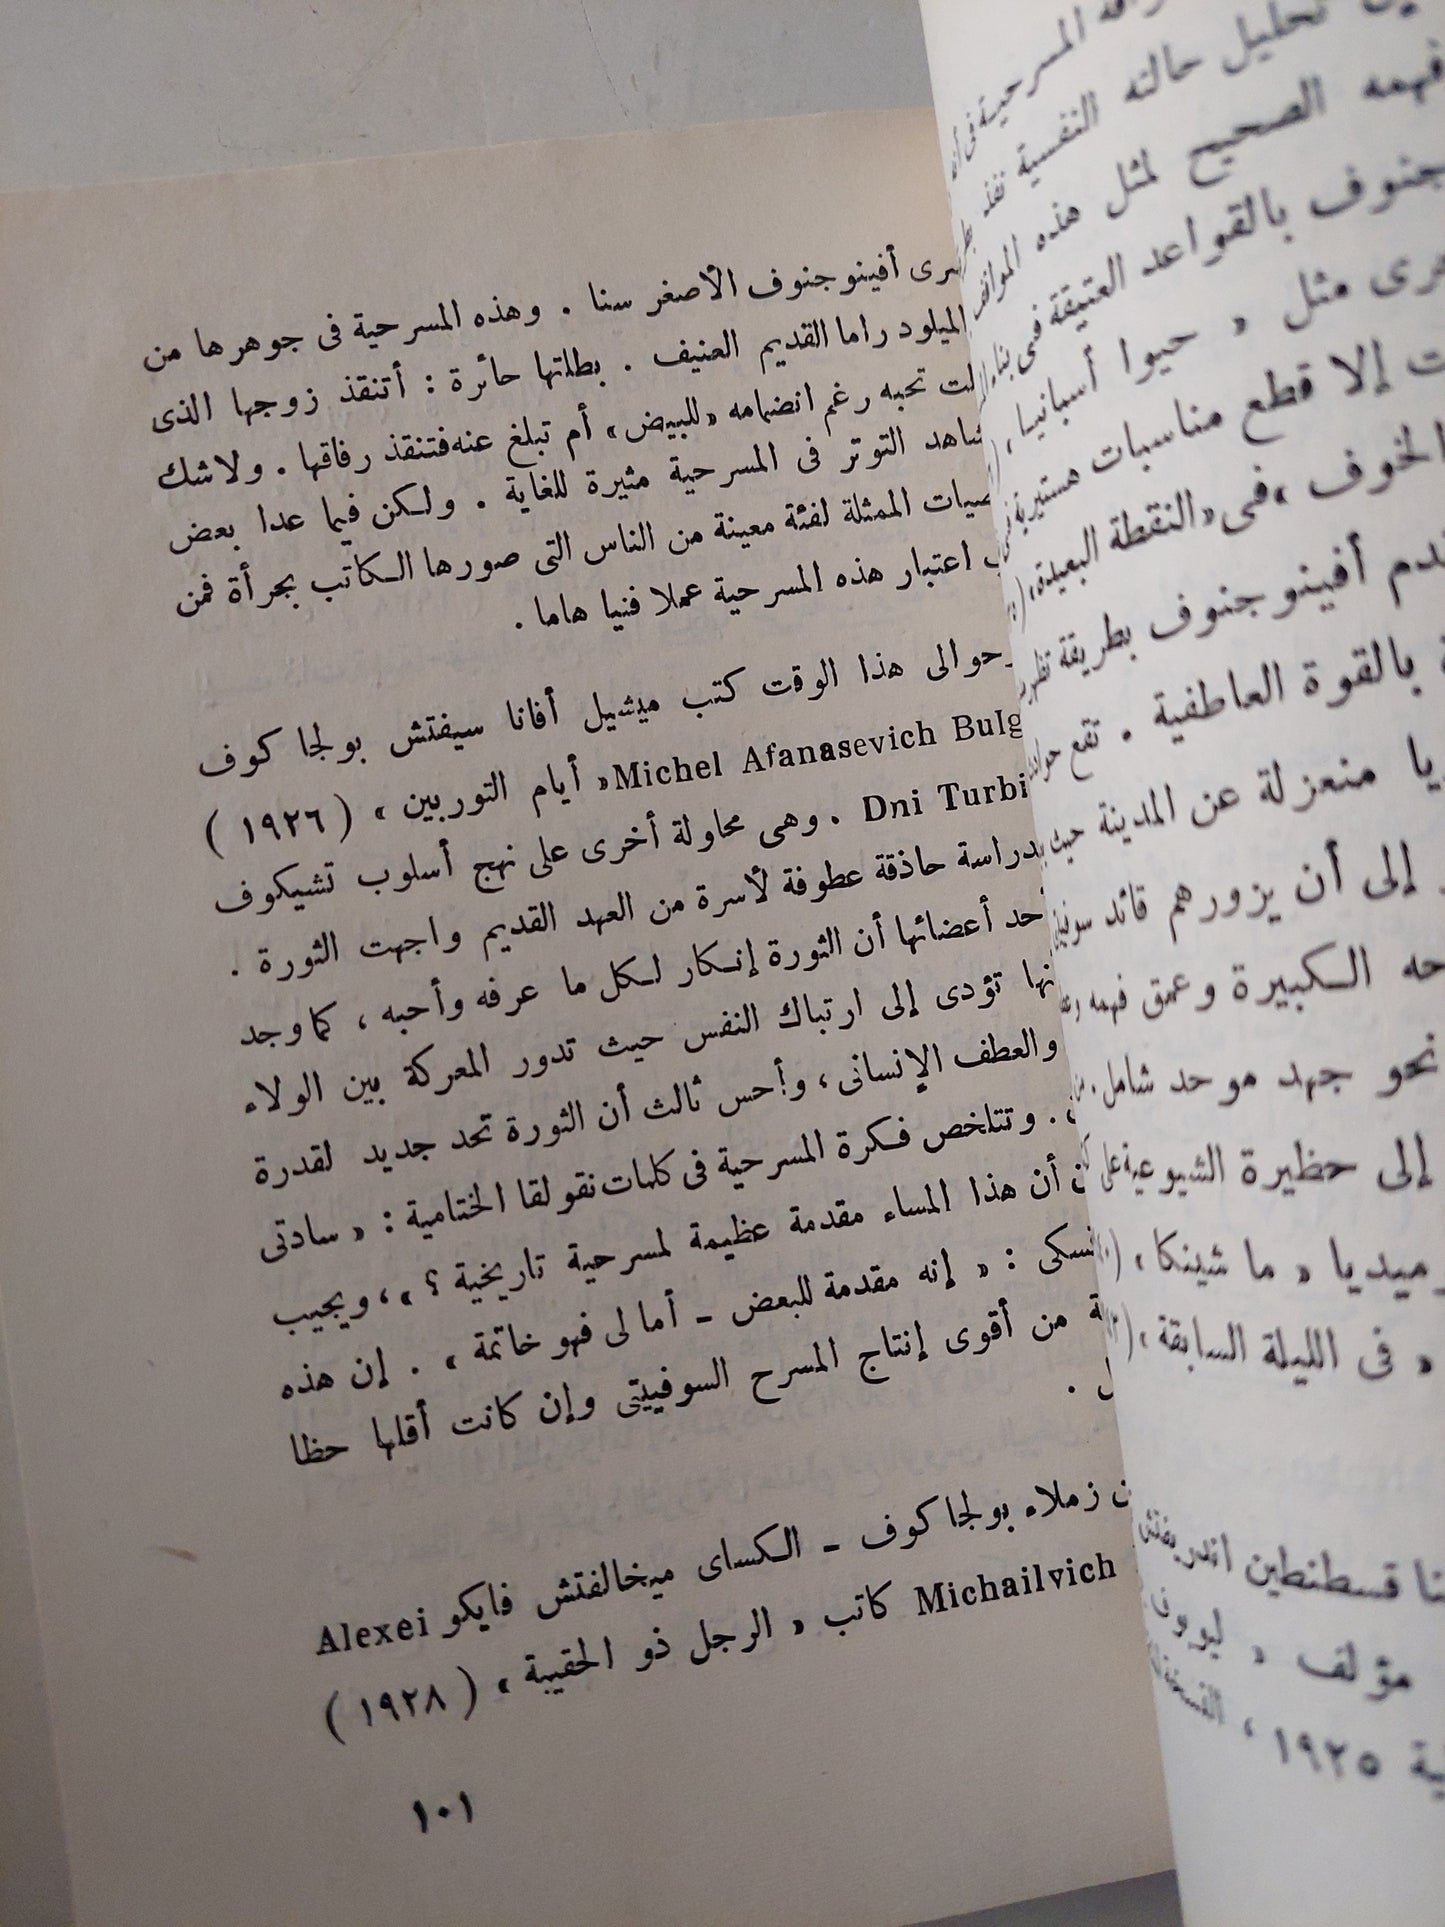 أفينو جنوف الأصغر سنا . وهذه المسرحية فى جوهرها من
الميلودراما القديم العنيف . بطلتها حائرة : أتنقذ زوجها الذى
تحبه رغم انضمامه «للبيض» أم تبلغ عنه فتنقذ رفاقها . ولاشك
التوتر فى المسرحية مثيرة للغاية . ولكن فيما عدا بعض
الممثلة لفئة معينة من الناس التى صورها الكاتب بجرأة فمن
اعتبار هذه المسرحية عملا فنيا هاما .
هذا الوقت كتب ميشيل أفانا سيفتش بولجا كوف
Michel Afanasevich Bulg «أيام التوربين» (١٩٢٦)
Dni Turbi . وهى محاولة أخرى على نهج أسلوب تشيكوف
دراسة حاذقة عطوفة لأسرة من العهد القديم واجهت الثورة .
أعضائها أن الثورة إنكار لكل ما عرفه وأحبه ، كما وجد
تؤدى إلى ارتباك النفس حيث تدور المعركة بين الولاء
والعطف الإنسانى ، وأحس ثالث أن الثورة تحد جديد لقدرة
. وتتلخص فكرة المسرحية فى كلمات نقولقا الختامية : « سادتى
أن هذا المساء مقدمة عظيمة لمسرحية تاريخية ؟ » ، ويجيب
: « إنه مقدمة للبعض - أما لى فهو خاتمة » . إن هذه
من أقوى إنتاج المسرح السوفييتى وإن كانت أقلها حظا
زملاء بولجا كوف - الكساى ميخالفتش فايكو Alexei
Michailvich كاتب « الرجل ذو الحقيبة » (١٩٢٨)
١٠١
تحليل حالته النفسية
فهمه الصحيح لمثل هذه المواقف
جنوف بالقواعد العتيقة فى بناء
مثل « حيوا أسبانيا »
إلا قطع مناسبات هستيرية
الخوف » فى «النقطة البعيدة»
أفينو جنوف بطريقة
بالقوة العاطفية . تقع
منعزلة عن المدينة حيث
إلى أن يزورهم قائد
الكبيرة وعمق فهمه
نحو جهد موحد شامل .
إلى حظيرة الشيوعية على
« ما شينكا »
« فى الليلة السابقة »
قسطنطين
مؤلف «
١٩٢٥ ،